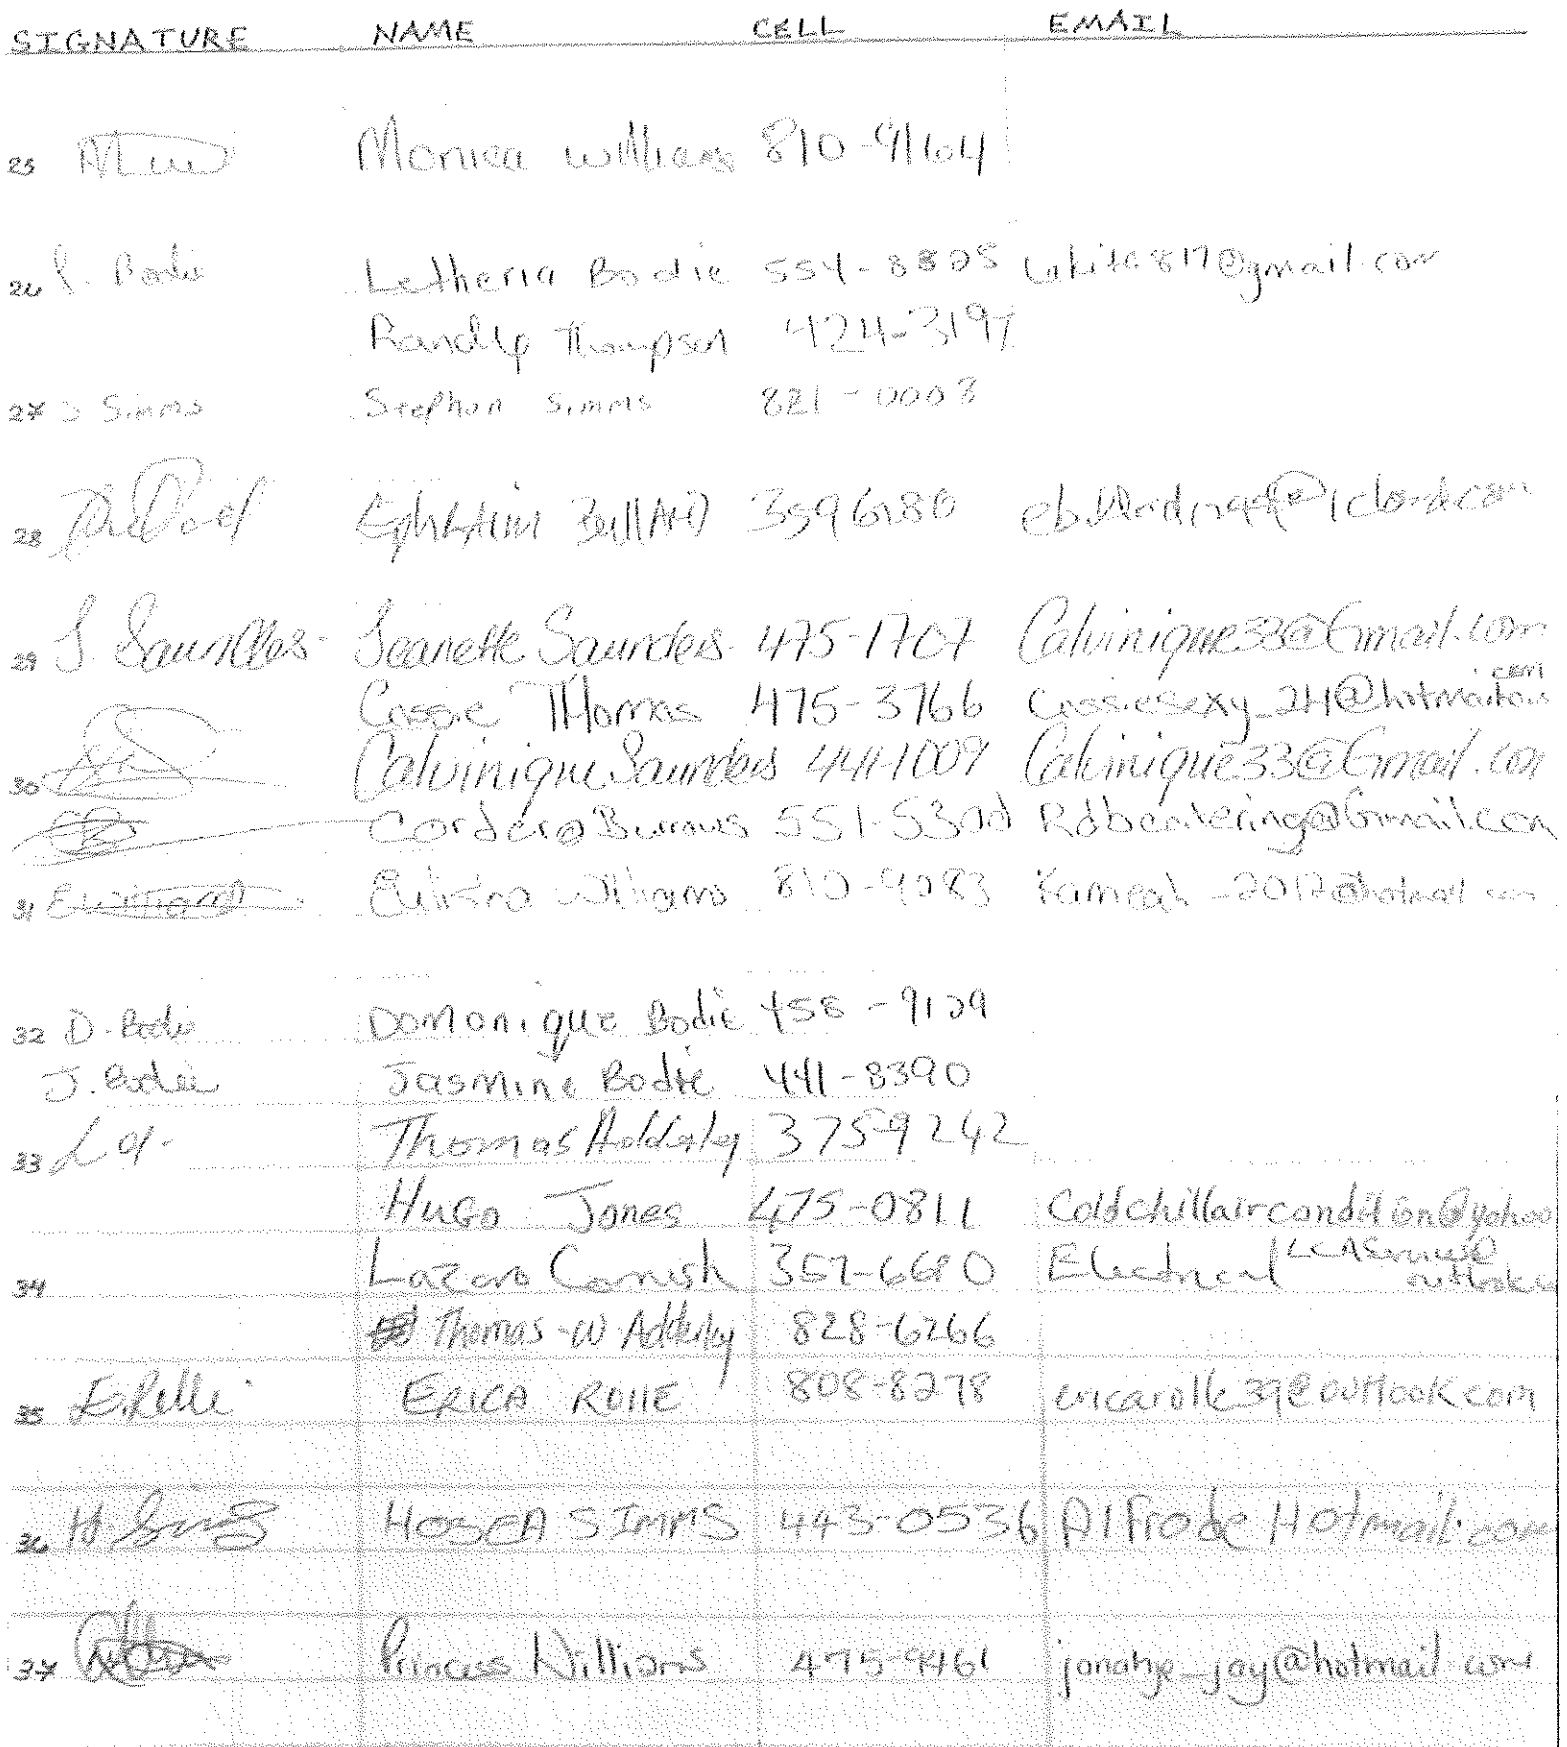 SIGNATURE NAME CELL EMAIL
25 Monica Williams 810-9164
26 L. Bodie Letheria Bodie 554-8825 white817@gmail.com
Randly Thompson 424-3197
27 S Simms Stephon Simms 821-0003
28 Ephraim BullARD 3596180
29 J. Saunders Jeanette Saunders 475-1707 Calvinique33@Gmail.com
Cassie THomas 475-3766 Cassiesexy_24@hotmail.com
30 Calvinique Saunders 441-1009 Calvinique33@Gmail.com
Cordero Burrows 551-5300 Rdbcatering@Gmail.com
31 E Williams Williams 810-9083 Kameah_2012@hotmail.com
32 D. Bodie Domonique Bodie 458-9129
J. Bodie Jasmine Bodie 441-8390
33 Thomas Adderley 375-9242
HuGo Jones 475-0811 Coldchillaircondition@yahoo
34 Lazaro Cornish 357-6680 Electrical
Thomas W Adderley 828-6266
35 E. Rolle ERICA ROllE 808-8278 ericarolle39@outlook.com
36 H Simms HOSEA SIMMS 443-0536 Hotmail.com
37 Princess Williams 475-9461 jay@hotmail.com